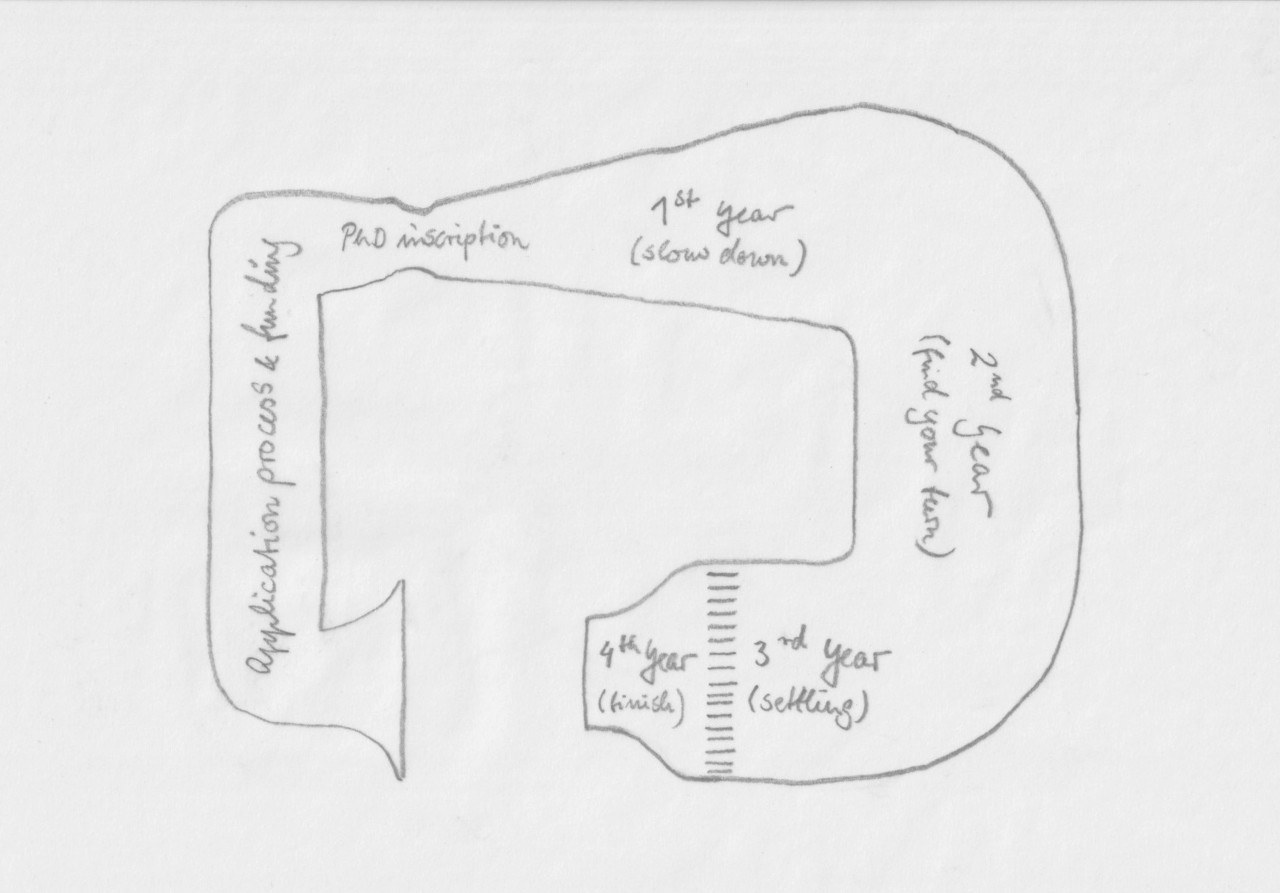 Application process & funding
PhD inscription
1st year
(slow down)
2nd year
(find your turn)
3rd year
(settling)
4th year
(finish)